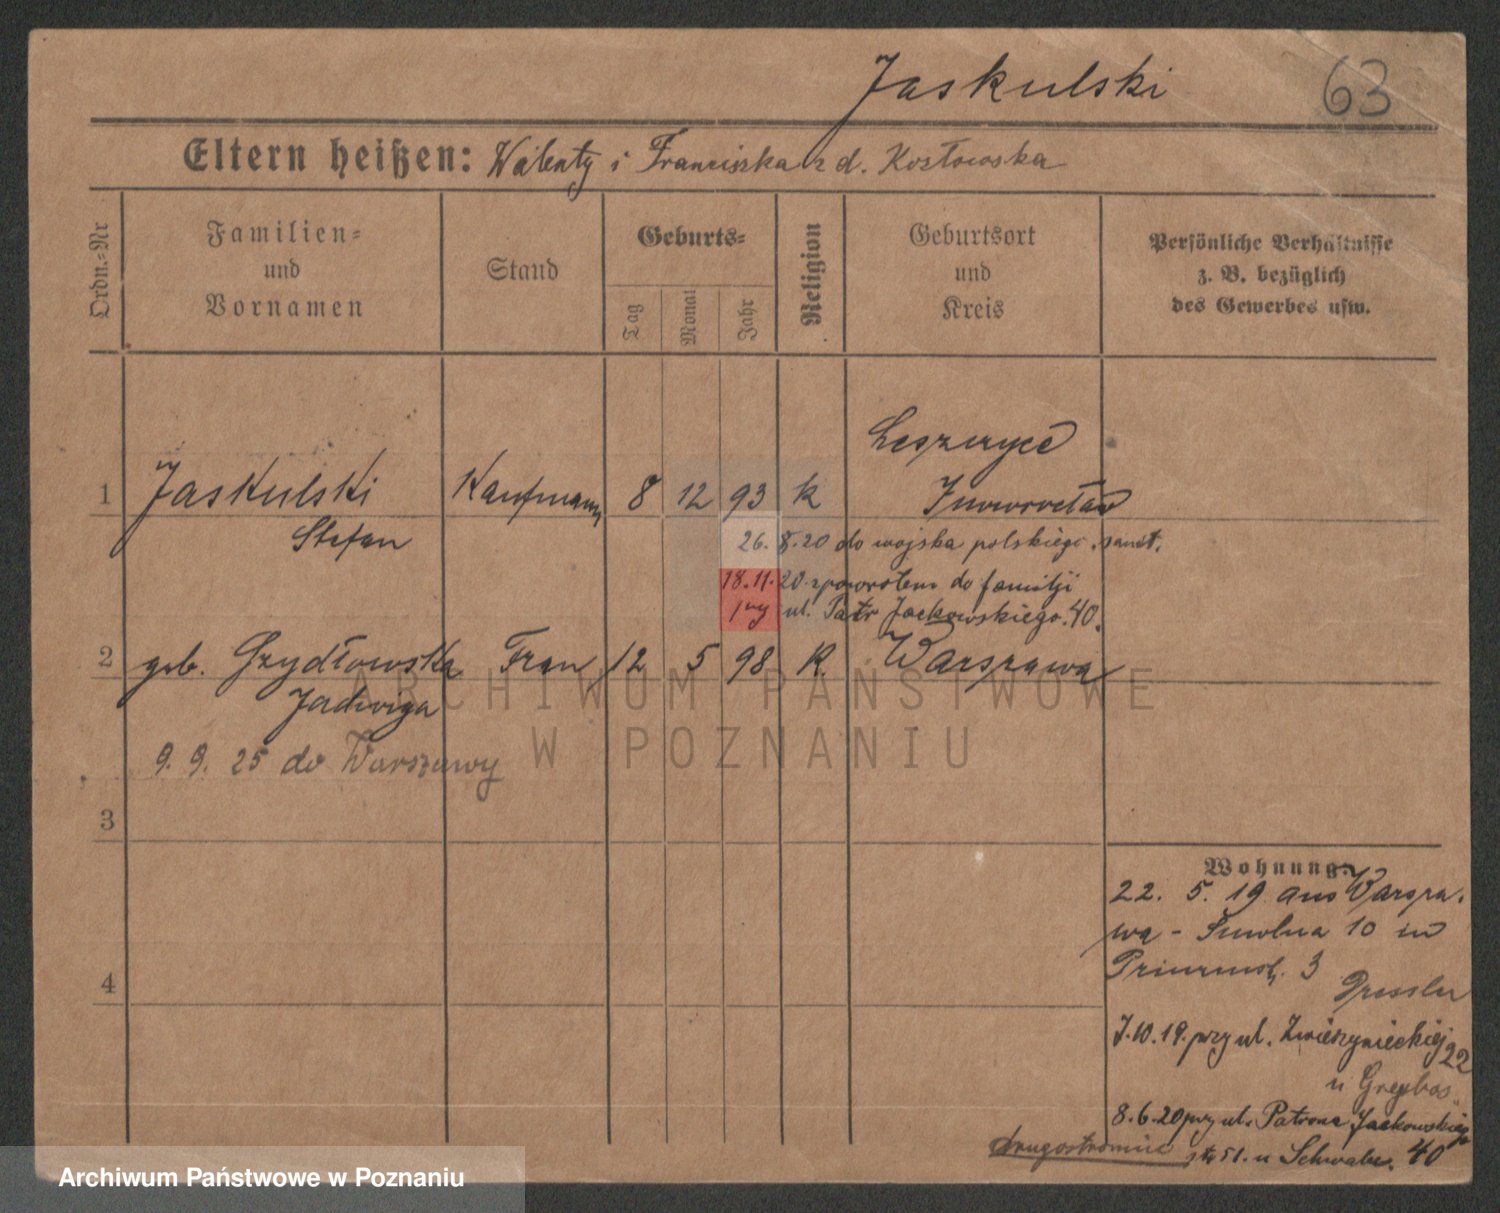 Jaskulski
63
Eltern heißen: Walenty i Franciszka z d. Kozłowska
Ordn.-Nr
Familien-
und
Vornamen
Stand
Geburts-
Tag
Monat
Jahr
Religion
Geburtsort
und
Kreis
Persönliche Verhältnisse
z. B. bezüglich
des Gewerbes usw.
Leszczyce
1 Jaskulski Kaufmann 8 12 93 k Inowrocław
Stefan
26. 8. 20 do wojska polskiego
18. 11. 20 zpowrotem do familji
przy ul. Patr Jackowskiego 40.
2 geb. Grzydłowska Frau 12 5 98 k. Warszawa
Jadwiga
9. 9. 25 do Warszawy
3
4
Wohnung:
22. 5. 19 aus Warsza-
wa - Smolna 10 in
Prinzenstr. 3
Dressler
7. 10. 19. przy ul. Zwierzynieckiej 22
u
8. 6. 20 przy ul. Patrona Jackowskiego
40
u Schwabe.
ARCHIWUM PAŃSTWOWE
W POZNANIU
Archiwum Państwowe w Poznaniu